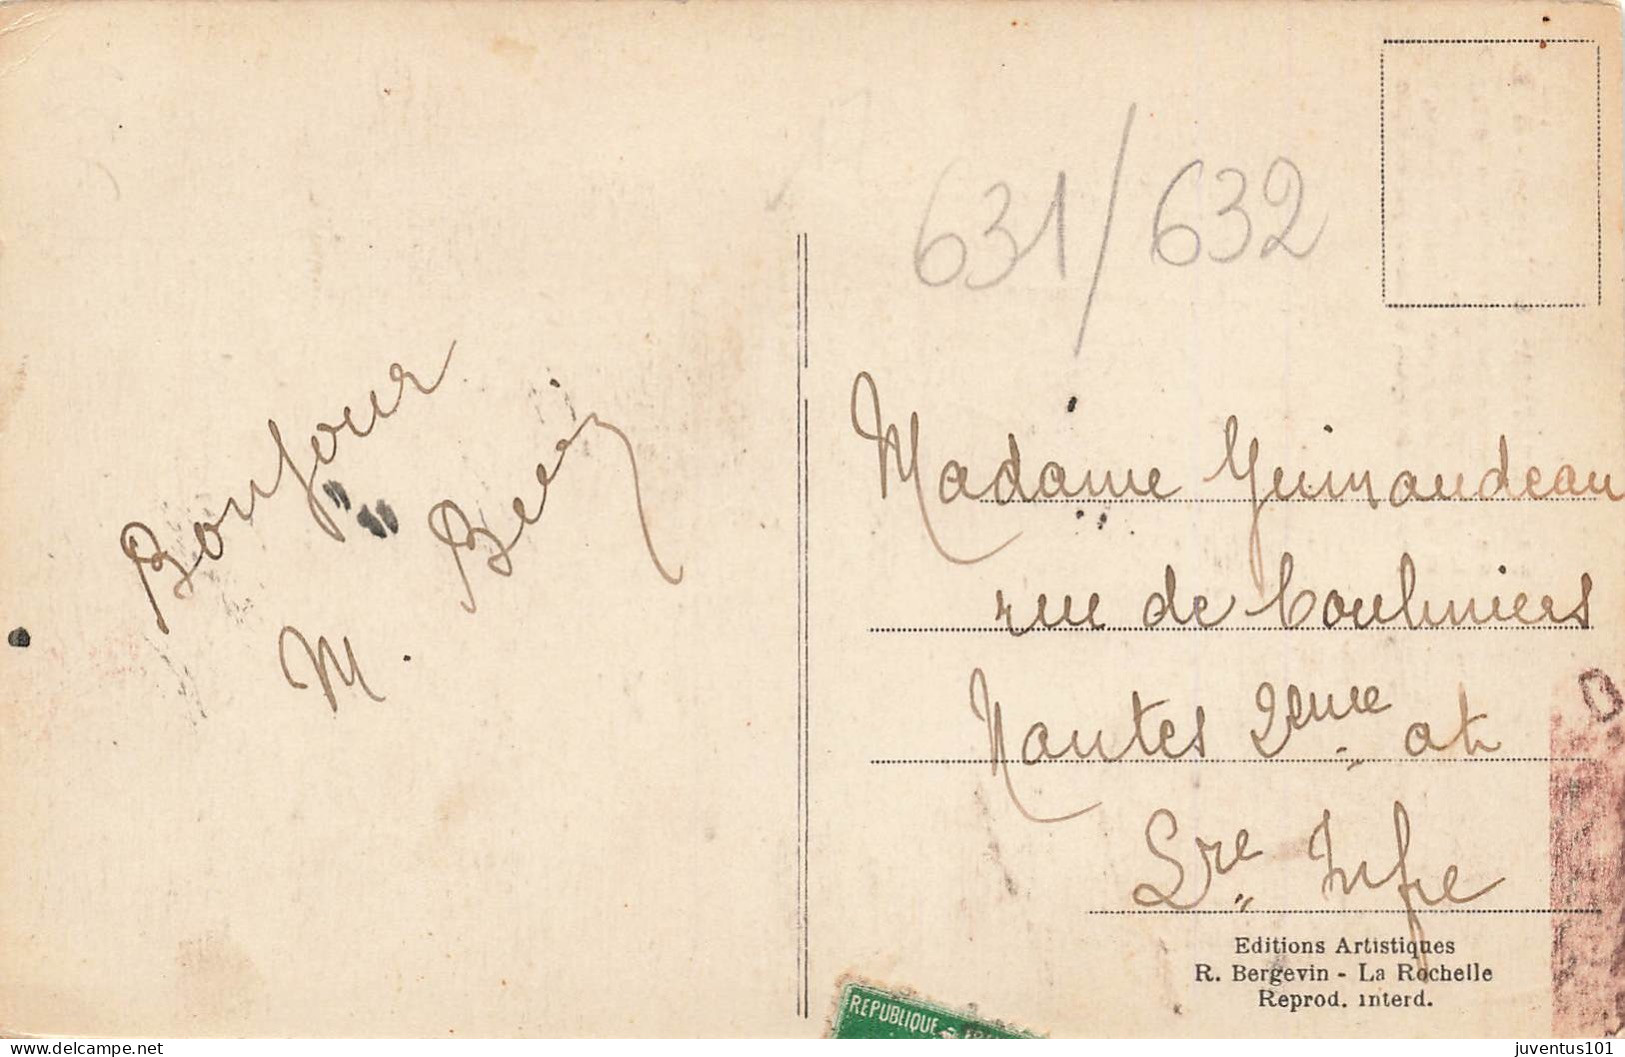 Bonjour
M.
631/632
Madame Guinaudeau
rue de Coulmiers
Nantes 2eme at
Lre Infre
Editions Artistiques
R. Bergevin - La Rochelle
Reprod. interd.
REPUBLIQUE
www.delcampe.net
juventus101